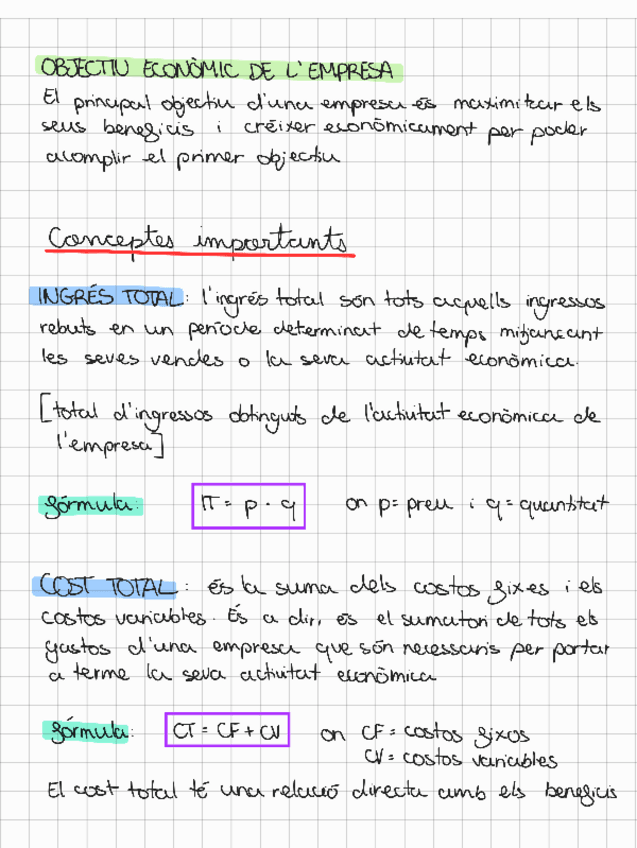 OBJECTIU ECONÒMIC DE L'EMPRESA
El principal objectiu d'una empresa és maximitzar els
seus beneficis i créixer econòmicament per poder
acomplir el primer objectiu
Conceptes importants
INGRÉS TOTAL: l'ingrés total són tots aquells ingressos
rebuts en un període determinat de temps mitjançant
les seves vendes o la seva activitat econòmica.
[total d'ingressos obtinguts de l'activitat econòmica de
l'empresa]
fórmula: IT = p · q on p = preu i q = quantitat
COST TOTAL: és la suma dels costos fixes i els
costos variables. És a dir, és el sumatori de tots els
gastos d'una empresa que són necessaris per portar
a terme la seva activitat econòmica
fórmula: CT = CF + CV on CF = costos fixos
CV = costos variables
El cost total té una relació directa amb els beneficis